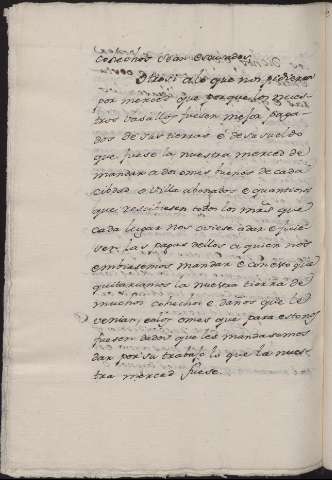 cohechos e dan escusados
Otrosi a lo que nos pidieron
por merced que porque los nues-
tros vasallos fuesen mejor paga-
dos de sus tierras e de su sueldo
que fuese la nuestra merced de
mandar a dos omes buenos de cada
ciudad e villa abonados e quantiosos
que rescibiesen todos los mrs que
cada lugar nos oviese a dar e ficie-
sen las pagas dellos a quien nos
embiasemos mandar e con esto que
quitariamos la nuestra tierra de
muchos cohechos e daños que le
venian, e a los omes que para esto nos
fuesen dados que les mandasemos
dar por su trabajo lo que la nues-
tra merced fuese.